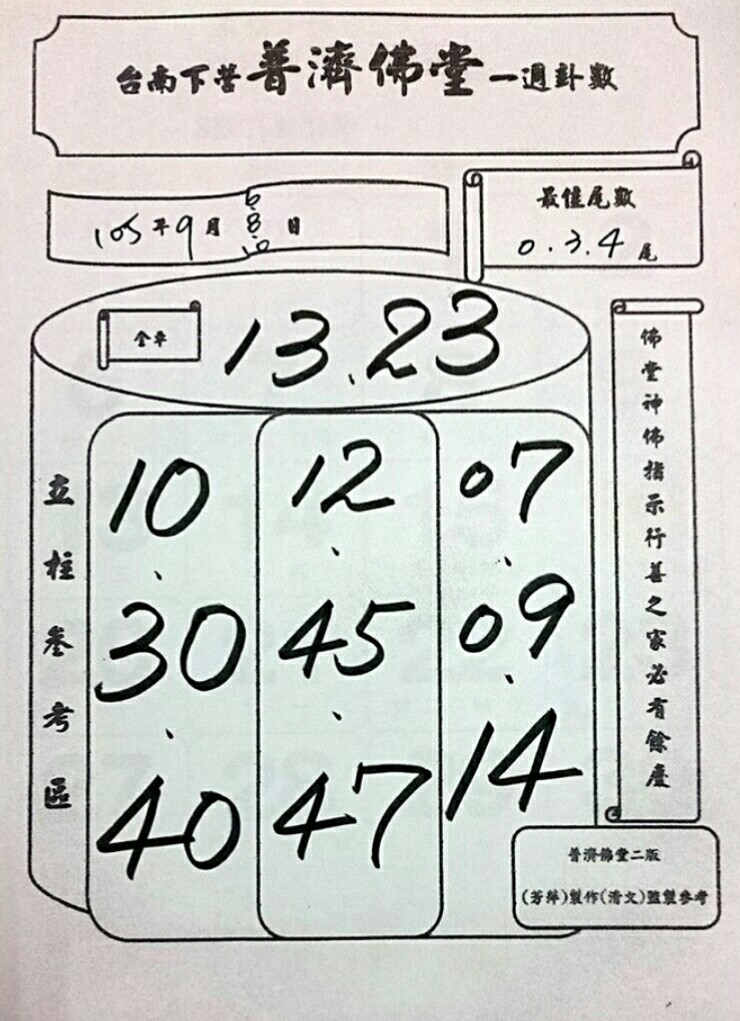 台南下營普濟佛堂一週卦數
105年9月6.8.10日
最佳尾數
0.3.4尾
全車
13、23
立柱參考區
10、30、40
12、45、47
07、09、14
佛堂神佛指示行善之家必有餘慶
普濟佛堂二版
(芳萍)製作(清文)監製參考